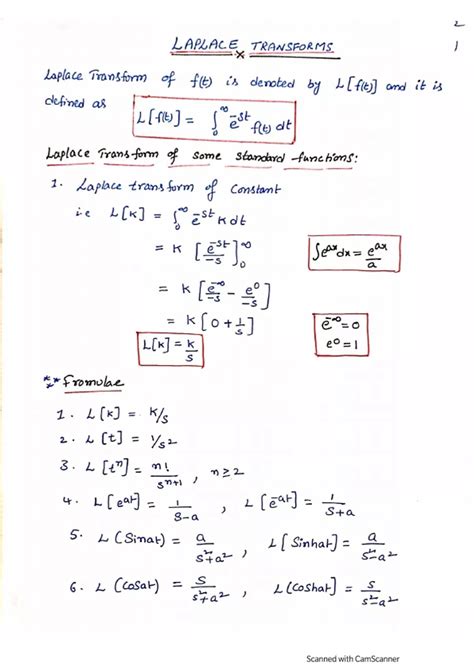 2
1
LAPLACE TRANSFORMS
Laplace Transform of f(t) is denoted by L[f(t)] and it is
defined as
L[f(t)] = ∫₀^∞ e^-st f(t) dt
Laplace Transform of some standard functions:
1. Laplace transform of Constant
i.e L[K] = ∫₀^∞ e^-st K dt
= K [e^-st/-s]₀^∞
∫e^ax dx = e^ax/a
= K [e^-∞/-s - e^0/-s]
= K [0 + 1/s]
e^-∞ = 0
e^0 = 1
L[K] = K/s
** Fromulae
1. L[K] = K/s
2. L[t] = 1/s^2
3. L[t^n] = n!/s^n+1 , n ≥ 2
4. L[e^at] = 1/s-a , L[e^-at] = 1/s+a
5. L(Sinat) = a/s^2+a^2 , L[Sinhat] = a/s^2-a^2
6. L(Cosat) = s/s^2+a^2 , L[Coshat] = s/s^2-a^2
Scanned with CamScanner